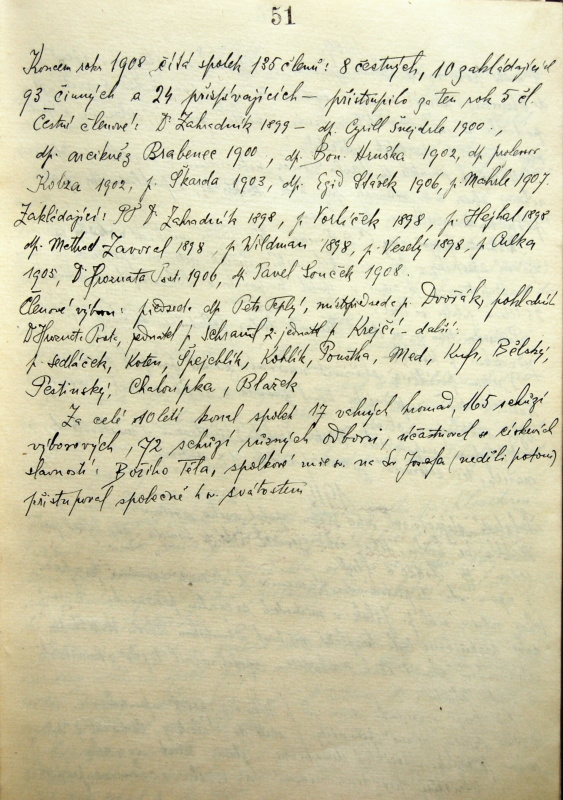 51
Koncem roku 1908 čítá spolek 135 členů: 8 čestných, 10 zakládajících
93 činných a 24 přispívajících – přistoupilo za ten rok 5 čl.
Čestní členové: Dr Zahradník 1899 – dp. Cyrill Šnejdrle 1900.,
dp. arcikněz Brabenec 1900, dp. Bon. Hruška 1902, dp. profesor
Kobza 1902, p. Škarda 1903, dp. Egid Stárek 1906, p. Mahrle 1907.
Zakládající: Dr. Zahradník 1898, p. Vorlíček 1898, p. Hejkal 1898
dp. Method Zavoral 1898, p. Wildman 1898, p. Veselý 1898, p. Culka
1905, Dr Hroznata 1906, dp. Pavel Souček 1908.
Členové výboru: předseda dp. Petr Teplý, místopředseda p. Dvořák, pokladník
Dr Hroznata, jednatel p. Schraml 2. jednatel p. Krejčí – další:
p. Sedláček, Koten, Špejchlík, Kohlík, Poustka, Med, Kufs, Bělský,
Pestinský, Chaloupka, Blažek
Za celé 10 letí konal spolek 17 valných hromad, 165 schůzí
výborových, 72 schůzí různých odborů, účastňoval se církevních
slavností: Božího Těla, spolkové mše sv. na Sv. Josefa (neděli potom)
přistupoval společně k sv. svátostem